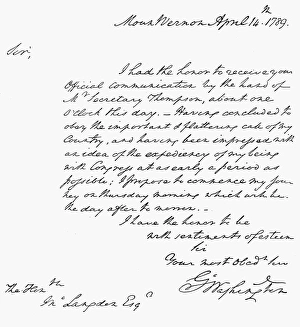 Mount Vernon April 14.th 1789.
Sir,
I had the honor to receive your
Official communication by the hand of
Mr. Secretary Thompson, about one
O'clock this day. — Having concluded to
obey the important & flattering call of my
Country, and having been impressed with
an idea of the expediency of my being
with Congress at as early a period as
possible; I propose to commence my jour
ney on thursday morning which will be
the day after to morrow. —
I have the honor to be
with sentiments of esteem
Sir
Your most Obedt Ser
Go Washington
The Honble
Jno Langdon Esqr